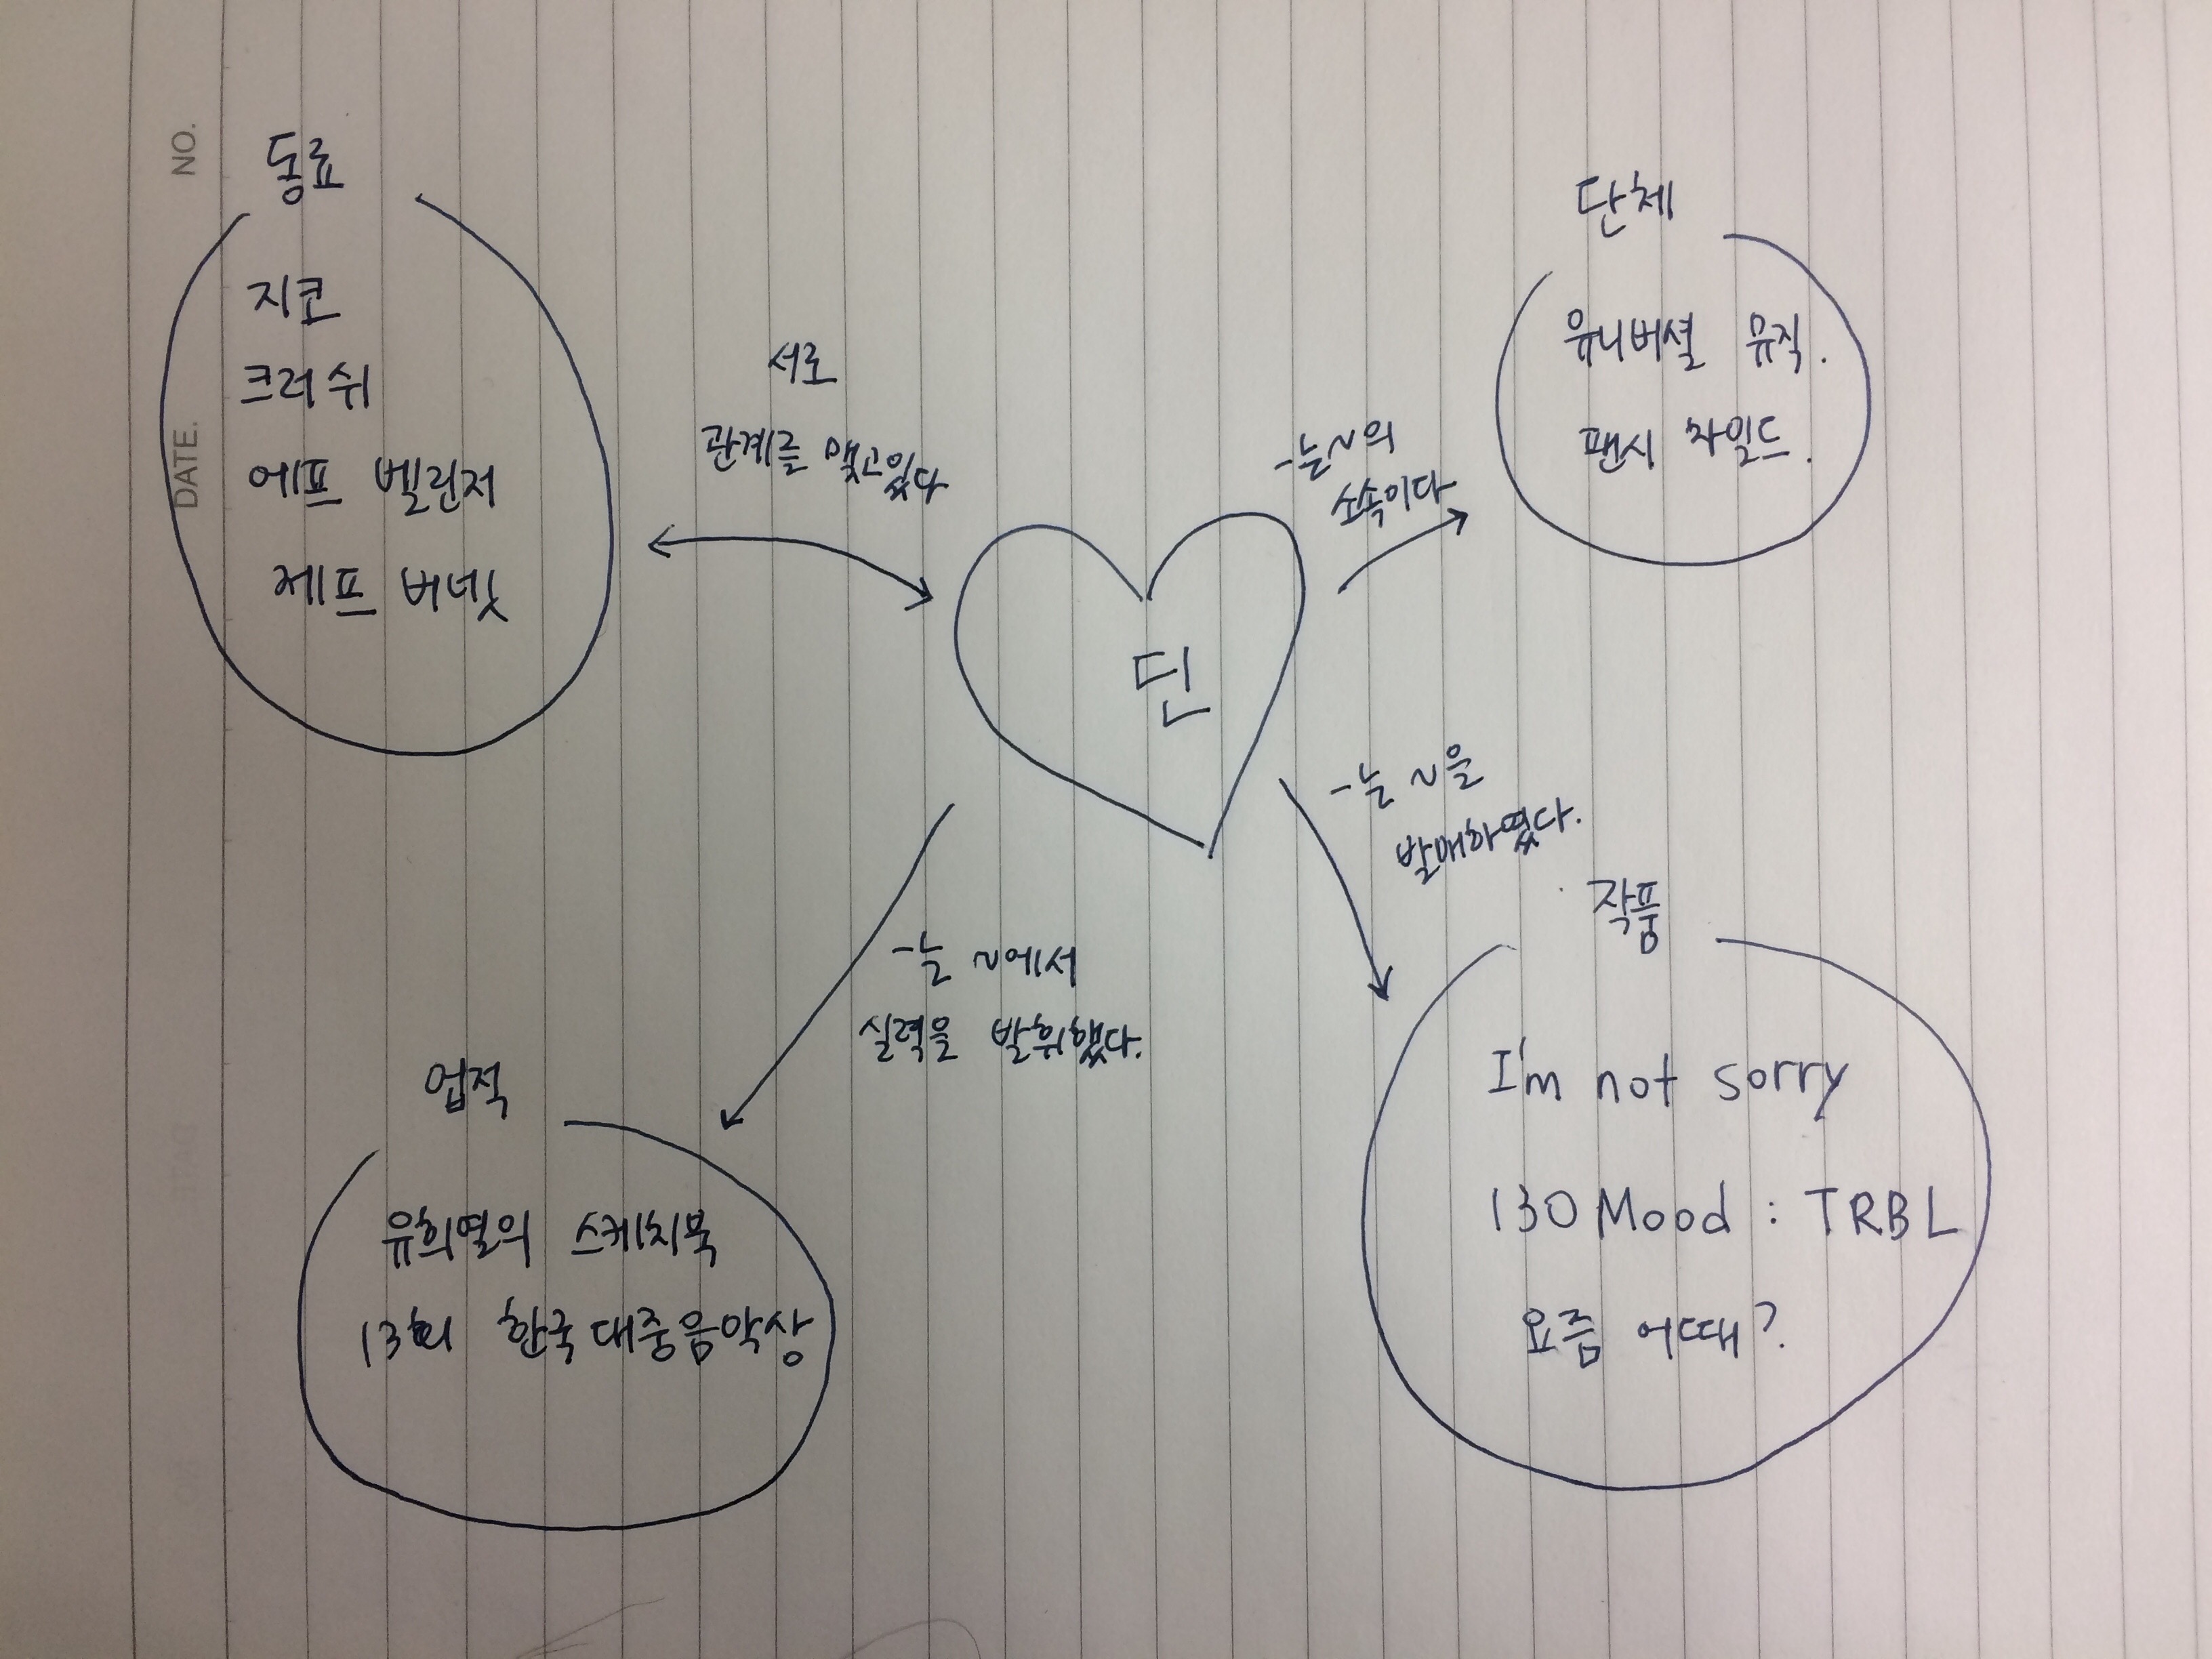 NO.
DATE.
동료
지코
크러쉬
에프 벨린저
제프 버넷
서로
관계를 맺고있다
단체
유니버셜 뮤직.
팬시 차일드.
-는 ~의
소속이다
딘
-는 ~을
발매하였다.
작품
I'm not sorry
130 Mood : TRBL
요즘 어때?
-는 ~에서
실력을 발휘했다.
업적
유희열의 스케치북
13회 한국대중음악상